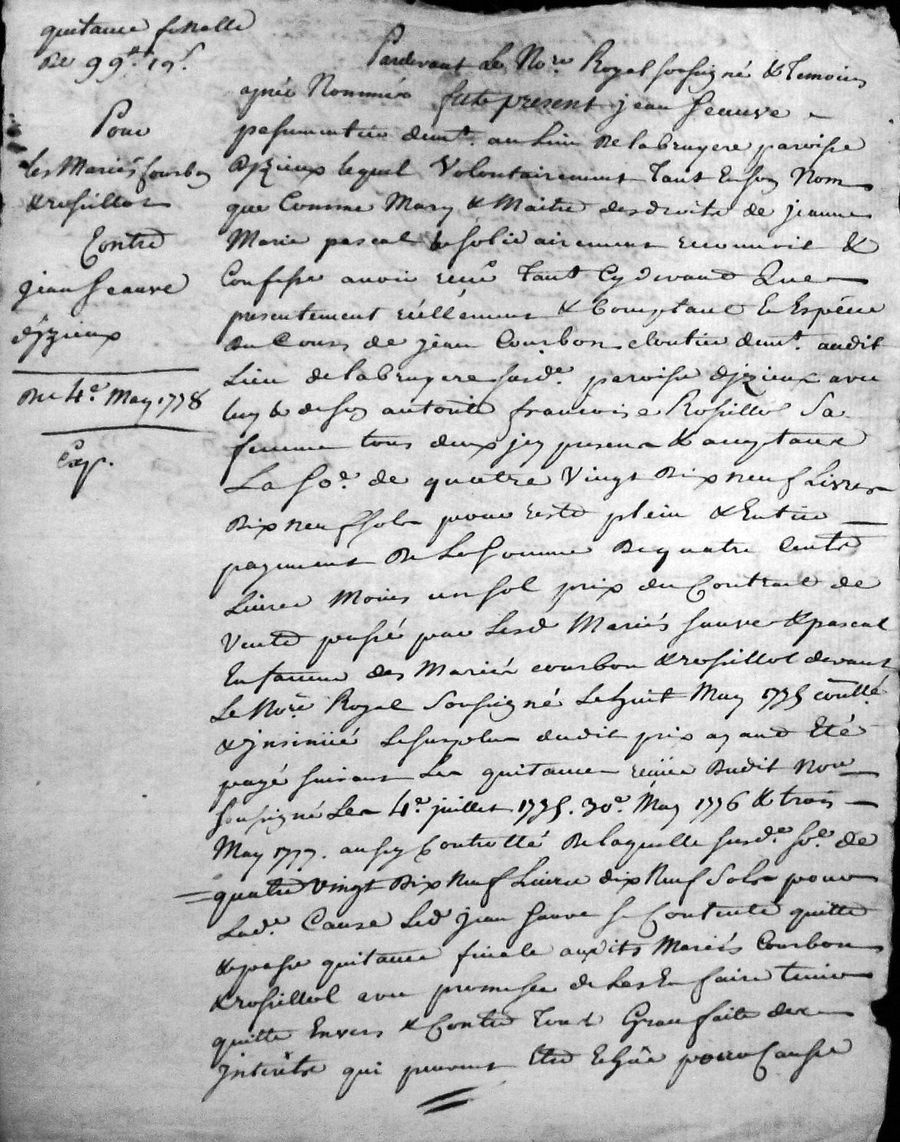 quitance finalle
De 99# 19s
Pour
Les Mariés Courbon
& rosillol
Contre
jean seauve
d'jzieux
Du 4e May 1778
Exp.
Pardevant Le Nore Royal soussigné & Temoins
après Nommés fut present jean seauve
passementier demt. au Lieu De labruyere paroisse
Djzieux lequel Volontairement Tant En son Nom
que Comme Mary & Maitre des droits de jeanne
Marie pascal & solidairement reconnoit &
Confesse avoir reçu Tant Cy devand Que
presentement réèllement & Comptant En Espéces
Du Cours de jean Courbon cloutier demt. audit
Lieu de labruyere susde. paroisse djzieux avec
luy & de son autorité francoise Rosillol Sa
femme tous deux jcy presens & acceptans
La soe. de quatre Vingt Dix neuf Livres
Dix neuf sols pour reste plein & Entier
payement De La somme De quatre Cents
Livres Moins un sol prix du Contract de
Vente passé par Lesd Mariés sauve & pascal
En faveur des Mariés courbon & rosillol devant
Le Nore Royal Soussigné Le huit May 1775 conllé
& jnsinüé Le surplus dudit prix ayand Eté
payé suivant Les quitances reüües Dudit Nore
soussigné Les 4e. juillet 1775. 30e. May 1776 & trois
May 1777. aussy Controllé De laquelle susde. soe. de
quatre Vingt Dix Neuf Livres dix Neuf Sols pour
Lade. Cause Led jean sauve se Contente quitte
& passe quitance finale auxdits Mariés Courbon
& rosillol avec promesse de Les En faire tenir
quitte Envers & Contre Tous Grace faite des
jnterêts qui peuvent Etre pour Cause